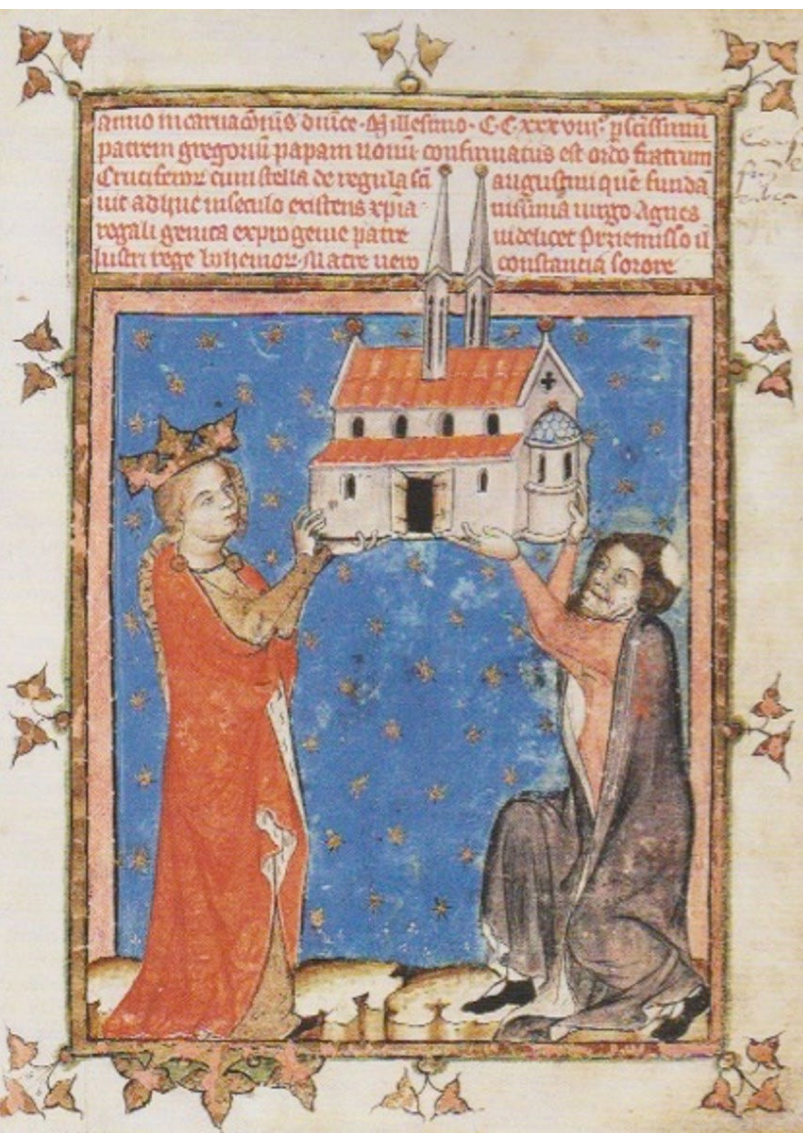 anno incarnac̄onis dnīce · Millesimo · C C xxxviii° · p scīssimū
patrem gregoriū papam nonū confirmatus est ordo fratrum
Cruciferoꝝ cum stella de regula sc̄i augustini quē funda
uit adhuc in seculo existens xp̄ia nissima uirgo Agnes
regali genita ex progenie patre uidelicet Prziemisso il
lustri rege bohemoꝝ · Matre uero constancia sorore